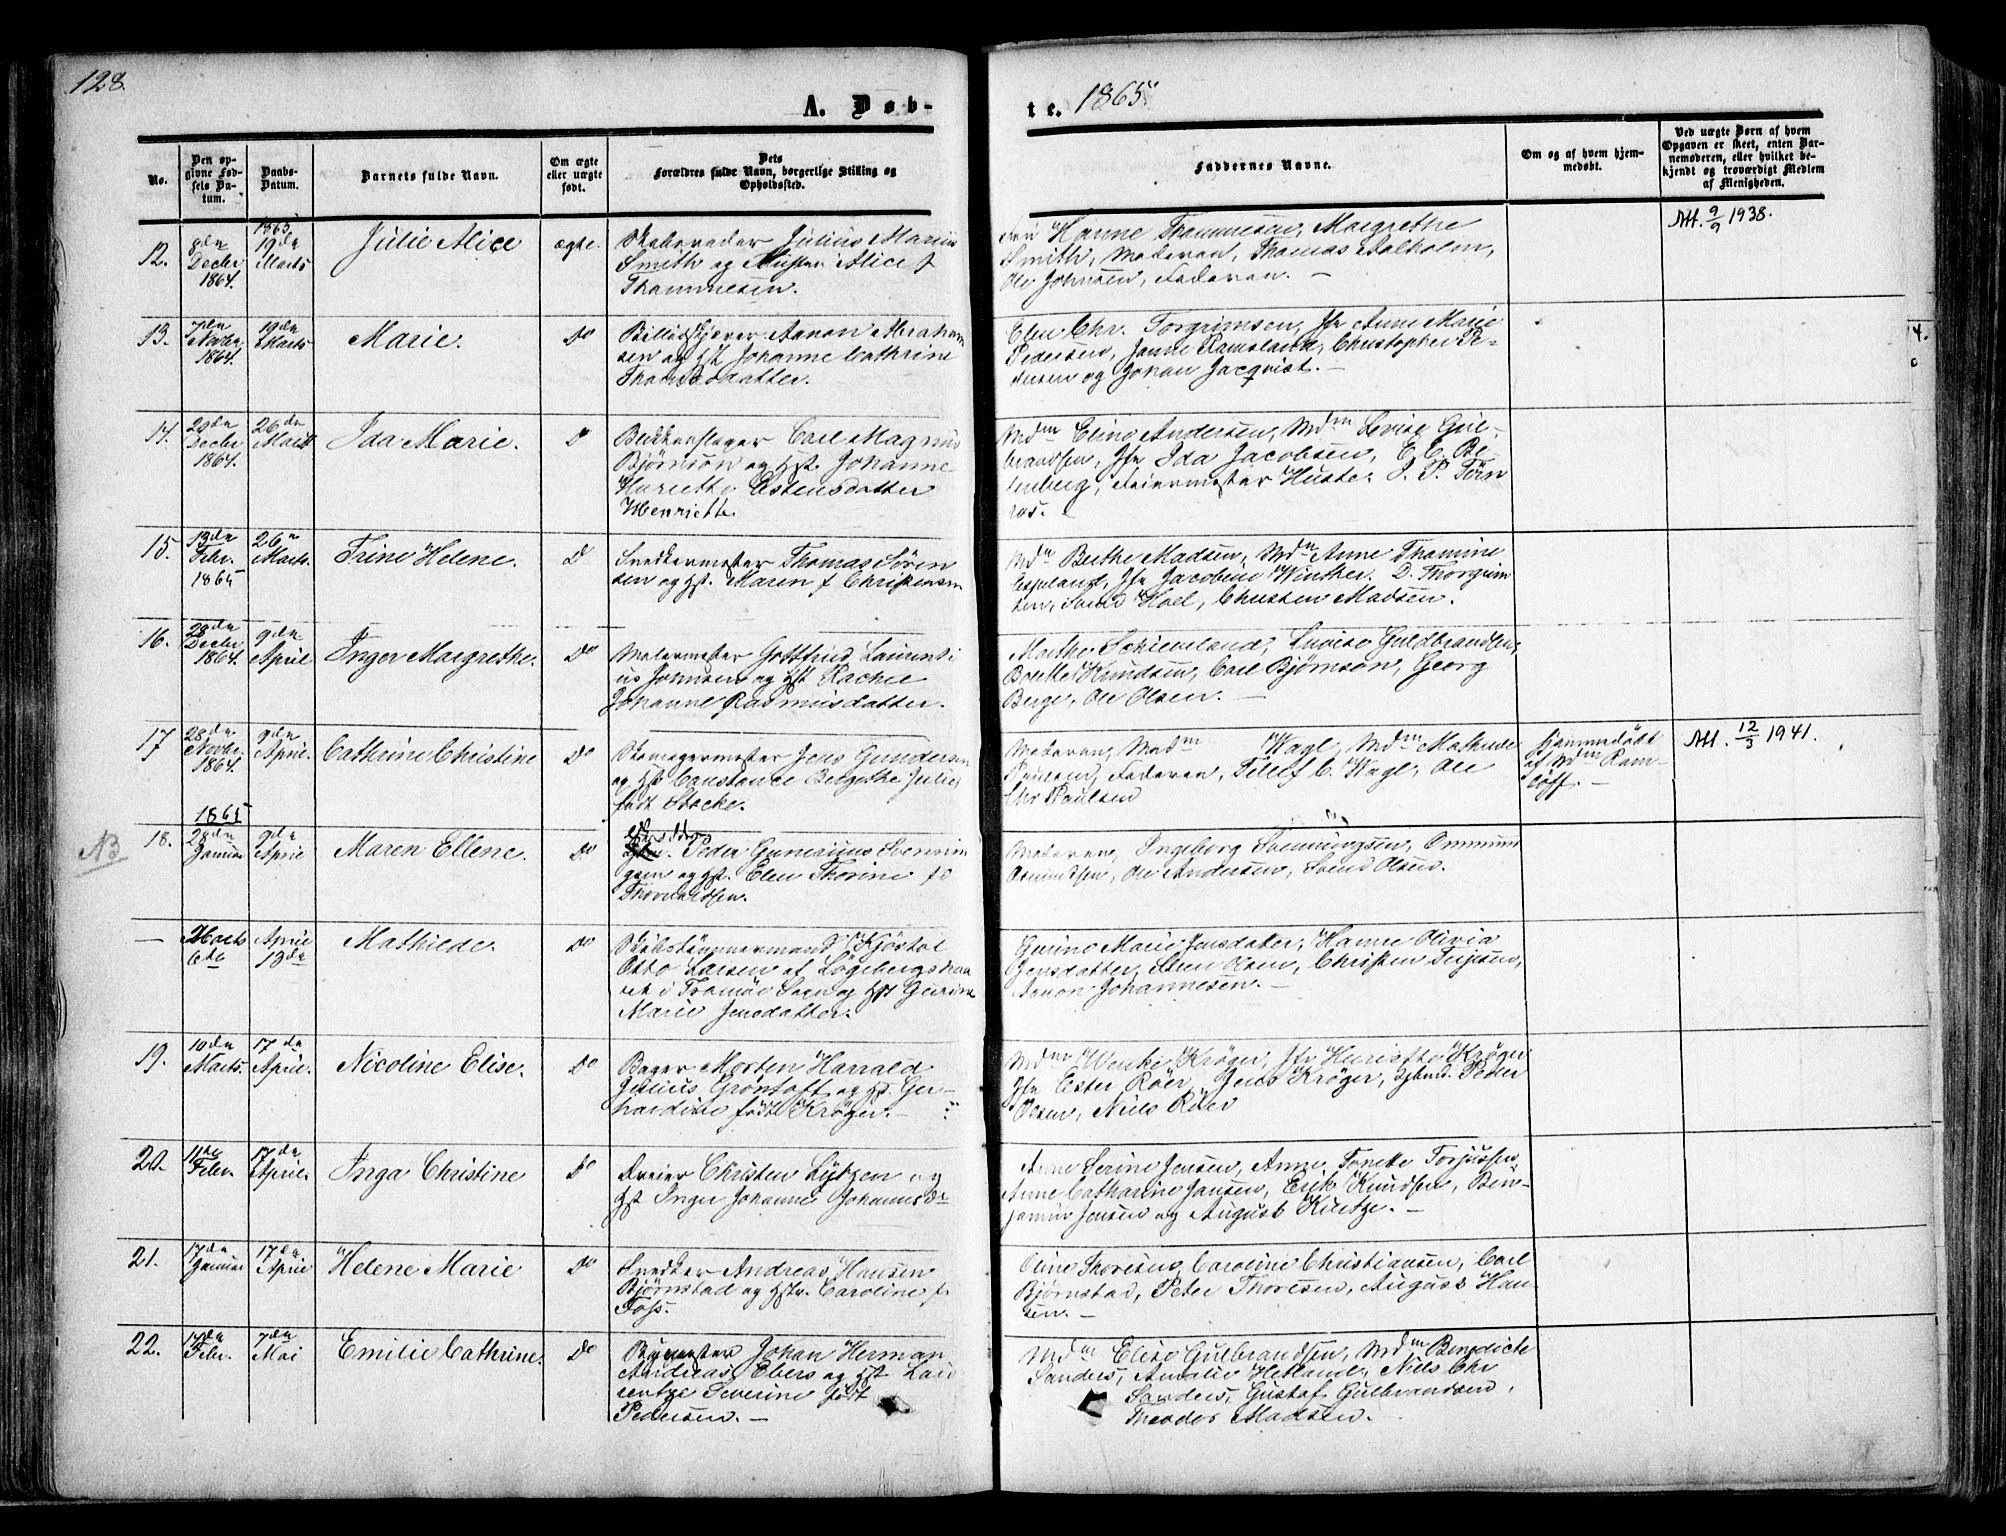 128.
A. Døb-
te. 1865.
No.
Den op-
givne Fød-
sels Da-
tum.
Daabs-
Datum.
Barnets fulde Navn.
Om ægte
eller uægte
født.
Dets
Forældres fulde Navn, borgerlige Stilling og
Opholdssted.
Faddernes Navne.
Om og af hvem hjem-
medøbt.
Ved uægte Børn af hvem
Opgaven er skeet, enten Bar-
nemoderen, eller hvilket be-
kjendt og troværdigt Medlem
af Menigheden.
12. 8de Decbr 1864. 1865. 19de Marts Julie Alice ægte.
Skibsreder Julius Marius
Smith og Hustru Alice f
Thommesen.
Hanne Thommesen, Margrethe
Smith, Moderen, Thomas Aalholm,
Ole Johnsen, Faderen. —
Att. 9/9 1938.
13. 7de Novbr 1864. 19de Marts Marie. Do
Aanon Abraham
sen og Hst Johanne Cathrine
Thomasdatter.
Elen Chr. Torgrimsen, Jfr Anne Marie
Pedersen, Janne Ramsland, Christopher Pe-
dersen og Johan Jacqvist. —
14. 29de Decbr 1864. 26de Marts Ida Marie. D
Blikkenslager Carl Magnus
Bjørnson og Hst. Johanne
Estensdatter
Henriette.
Mdm Eline Andersen, Mdm Lovise Gul-
brandsen, Jfr Ida Jacobsen, E. C. Be-
, Feiermester Huster. J. P. Törn
ros.
15. 13de Febr. 1865 26n Marts. Trine Helene. D
Snedkermester Thomas Sören
sen og Hst. Maren f Christensen
Mdm Berthe Madsen, Mdm Anne Thomine
Espeland, Jfr Jacobine Winther. D. Thorgrim
sen, Svend Hoel, Christen Madsen.
16. 29de Decbr 1864. 9de April Inger Margrethe. Do
Malermester Gottfried Laurenti
us Johnsen og Hst Rachel
Johanne Rasmusdatter.
Marthe Schieveland, Lovise Guldbrandsen,
Bolette Knudsen, Carl Bjørnson, Georg
Berge, Ole Olsen. —
17 28de Novbr. 1864. 9de April. Cathrine Christine Do
Skomagermester Jens Gundersen
og Hst Constance Birgithe Julie,
født Stocke.
Moderen, Madm Wagl, Mdm Mathilde
Paulsen, Faderen, Tellef C. Wagl, Ole
Chr Paulsen
Hjemmedøbt
af Mdm Ram-
löff. —
Att. 12/3 1941.
NB 18. 1865 28de Januar 9de April Maren Ellene. Do
Peder Gunerius Svennin
gsen og Hst. Elen Thorine fd
Thorvaldsen.
Moderen, Ingeborg Svenningsen, Ommund
Osmundsen, Ole Andersen, Svend Olsen.
— Marts 6te April 13de Mathilde. Do
Skibstömmermand Kjöstol
Otto Larsen af
i Tromöe Sogn og Hst Gurine
Marie Jensdatter.
Gurine Marie Jensdatter, Hanne Olivia
Jensdatter, Sören Olsen, Christen Terjesen,
Aanon Johannesen. —
19. 10de Marts. 17de April. Nicoline Elise. Do
Bager Morten Harrald
Julius Gröntoft og Hst. Ger-
hardine født Kröger. —
Mdm Wenke Kröger, Jfr Kröger
Jfr Ester Röer, Jens Kröger, Peder
Olsen, Niels Röer
20. 11te Febr. 17de April. Inga Christine Do
Dreier Christen Lytzen og
Hst Inger Johanne Johannsdr
Anne Serine Jensen, Anne Tonette Torjussen,
Anne Catharine Jansen, Erik Knudsen, Ben-
jamin Jensen og August Kintze. —
21. 17de Januar 17de April Helene Marie Do
Snedker Andreas Hansen
Bjørnstad og Hstr. Caroline f.
Foss.
Oline Thoresen, Caroline Christiansen, Carl
Bjørnstad, Peter Thoresen, August Han
sen. —
22. 14de Febr. 7de Mai Emilie Cathrine. Do
Johan Herman
Andreas Ebers og Hst Lau
rentze Severine født
Pedersen. —
Mdm Elise Gulbrandsen, Mdm Benedicte
Sanders, Amalie Hetland, Niels Chr
Sanders, Gustaf Gulbrandsen,
Theodor Madsen. —